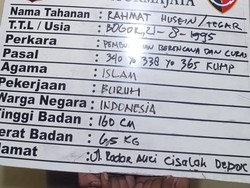 Nama Tahanan : RAHMAT HUSEIN/TEGAR
T.T.L / Usia : BOGOR, 21-8-1995
Perkara : PEMBUNUHAN BERENCANA DAN CURAS
Pasal : 340 Jo 338 Jo 365 KUHP
Agama : ISLAM
Pekerjaan : BURUH
Warga Negara : INDONESIA
Tinggi Badan : 160 CM
Berat Badan : 65 KG
Alamat : Jl. Cisalak Depok